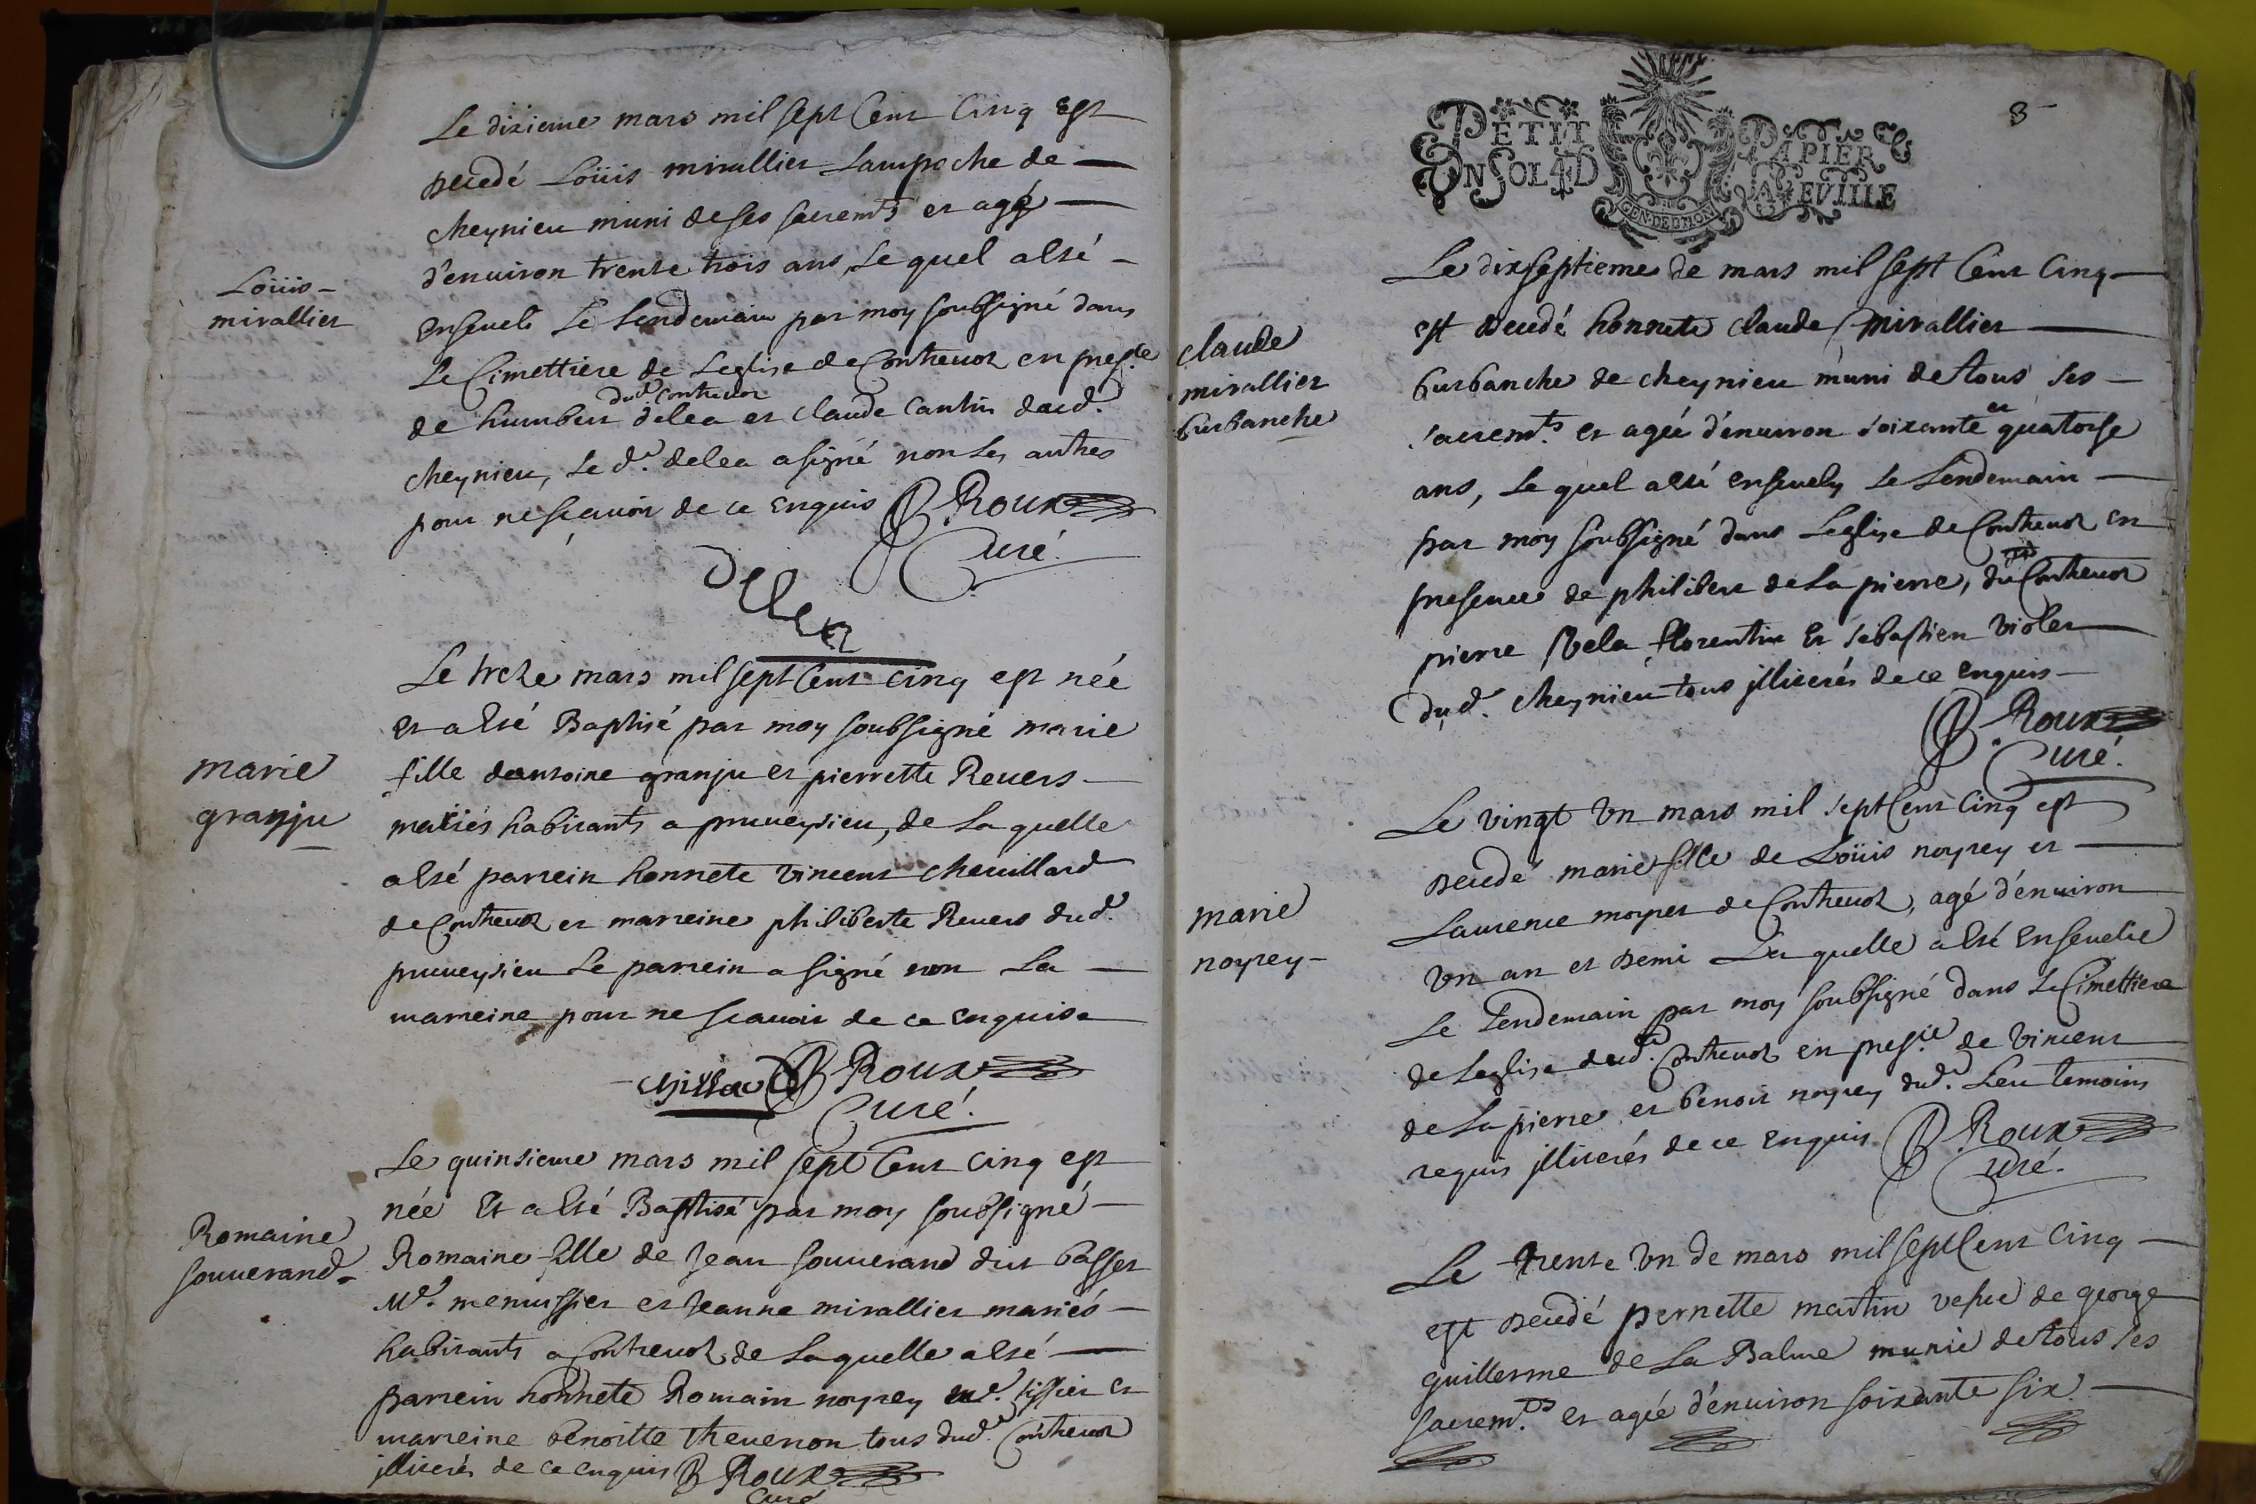 Le dixieme mars mil sept Cent Cinq est
decedé Loüis mirallier Lampoche de
cheynieu muni de ses sacremts et agé
d'enuiron trente trois ans, Le quel a esté
Enseueli Le Lendemain par moy soubsigné dans
Le Cimettiere de Leglise de Contreuoz en presce
dud. Contreuoz
de humbert delea et claude Cantin dud.
cheynieu, Le d. delea a signé non Les autres
pour ne scauoir de ce enquis B. Roux
Curé.
Delea
Loüis
mirallier
Le treze mars mil sept Cent cinq est née
et a esté Baptisé par moy soubsigné marie
fille dantoine granju et pierrette Reuers
mariés habitants a prueysieu, de La quelle
a esté parrein honnete vincent cheuillard
de Contreuoz et marreine philiberte Reuers dud.
prueysieu Le parrein a signé non La
marreine pour ne scauoir de ce enquise
B. Roux
Curé.
marie
granju
Le quinsieme mars mil sept Cent cinq est
née Et a esté Baptisé par moy soubsigné
Romaine fille de Jean souuerand dit basset
Me. menuissier et Jeanne mirallier mariés
habitants a Contreuoz de Laquelle a esté
parrein honnete Romain noyrey me. tissier et
marreine benoitte theuenon tous dud. Contreuoz
illiterés de ce enquis B Roux
Curé
Romaine
souuerand
8
PETIT PAPIER
UN SOL 4 D LA FEVILLE
GEN. DE DIJON
Le dixseptieme de mars mil sept Cent Cinq
est decedé honnete claude mirallier
burbanche de cheynieu muni de tous ses
sacremts. et agée d'enuiron soixante et quatorse
ans, Le quel a esté enseuely Le Lendemain
par moy soubsigné dans Leglise de Contreuoz en
presence de philibert de La pierre, du Contreuoz
pierre Vela florentin Et sebastien violet
dud. cheynieu tous illiterés de ce enquis
B. Roux
Curé.
claude
mirallier
burbanche
Le vingt Un mars mil sept Cent Cinq est
decedé marie fille de Loüis noyrey et
Laurence moyret de Contreuoz, agé d'enuiron
Un an et demi La quelle a Esté Enseuelie
Le Lendemain par moy soubsigné dans Le Cimettiere
de Leglise dud. Contreuoz en presce de vincent
de La pierre et benoit noyrey dud. Lieu temoins
requis illiterés de ce enquis B. Roux
Curé.
marie
noyrey
Le trente Un de mars mil sept Cent Cinq
est decedé pernette martin vefue de george
guillerme de La Balme munie de tous ses
sacremts. et agée d'enuiron soixante six